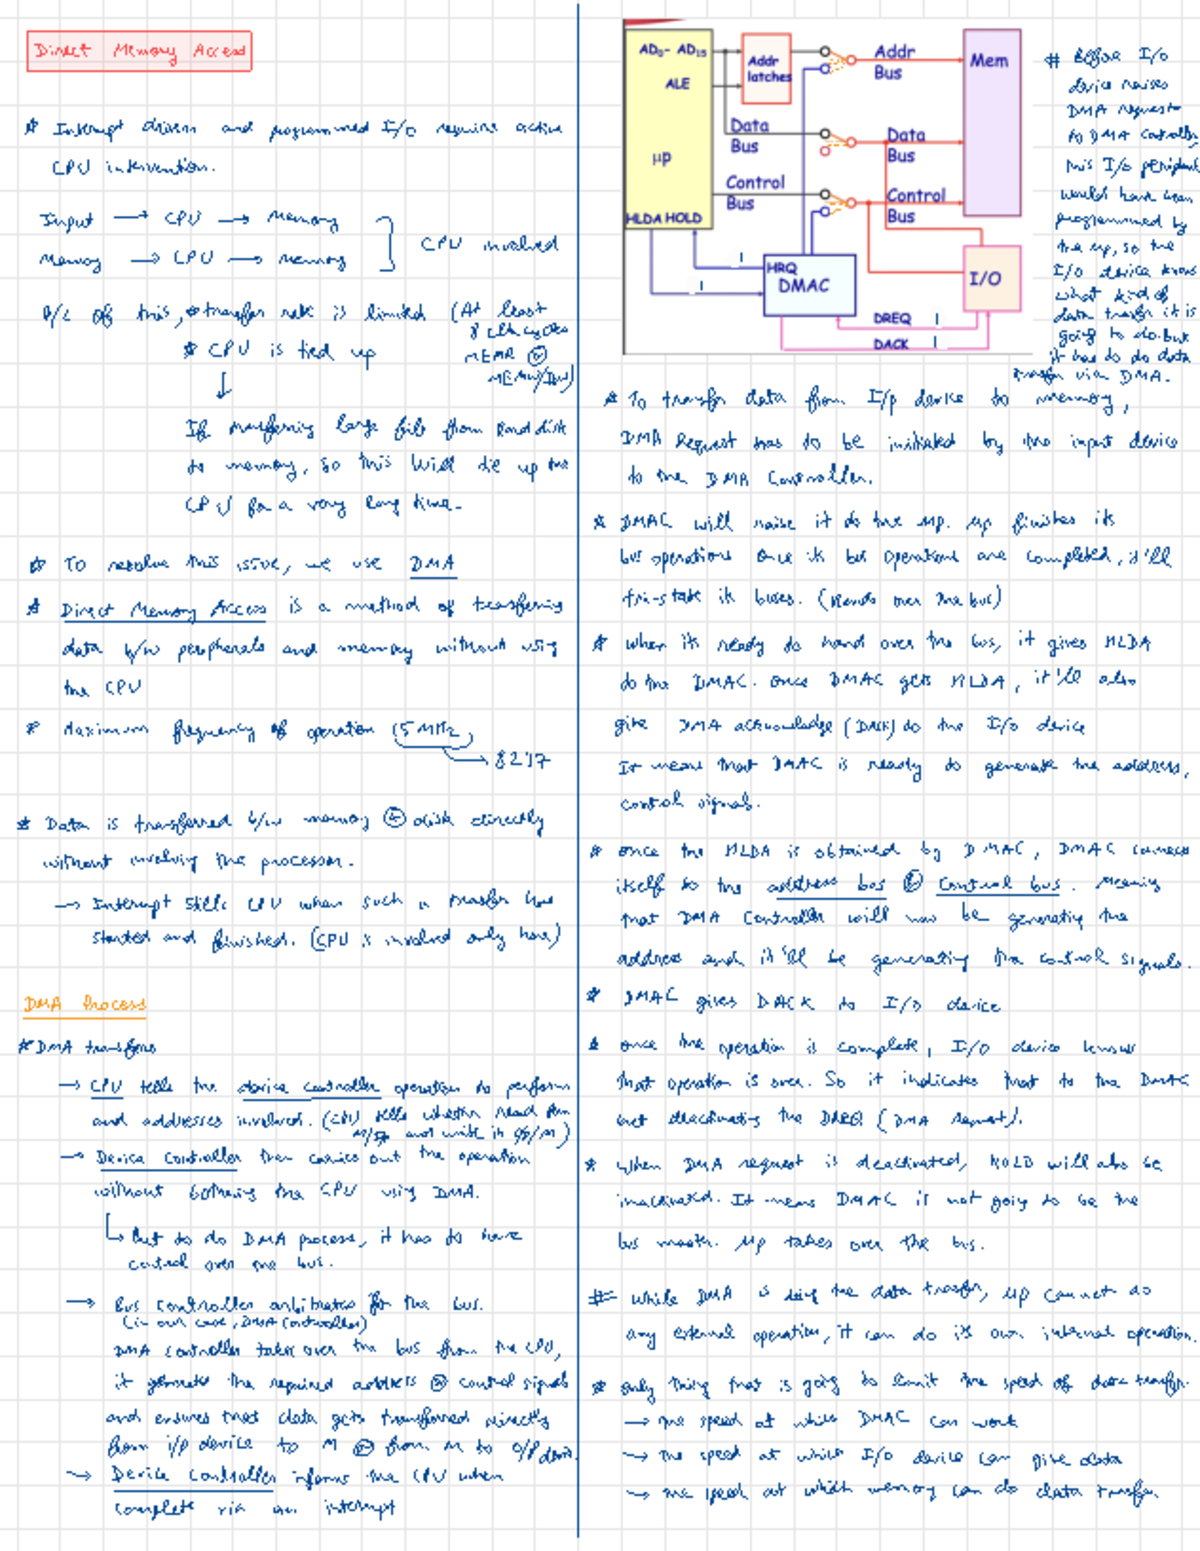 Direct Memory Access
* Interrupt driven and programmed I/O require active
CPU intervention.
Input → CPU → Memory
Memory → CPU → Memory
CPU involved
B/c of this, * transfer rate is limited (At least
8 clk cycles
MEMR
MEMW/IOW)
* CPU is tied up
↓
If transferring large file from hard disk
to memory, so this will tie up the
CPU for a very long time.
* To resolve this issue, we use DMA
* Direct Memory Access is a method of transferring
data b/w peripherals and memory without using
the CPU
* Maximum frequency of operation (5 MHz)
→ 8237
* Data is transferred b/w memory & disk directly
without involving the processor.
→ Interrupt still CPU when such a transfer has
started and finished. (CPU is involved only here)
DMA Process
* DMA transfers
→ CPU tells the device controller operation to perform
and addresses involved. (CPU tells whether read from
and write in)
→ Device Controller then carries out the operation
without bothering the CPU using DMA.
↳ But to do DMA process, it has to have
control over the bus.
→ Bus controller arbitrates for the bus.
(in our case, DMA Controller)
DMA controller takes over the bus from the CPU,
it generate the required address & control signals
and ensures that data gets transferred directly
from i/p device to M & from M to O/P devi.
→ Device Controller informs the CPU when
complete via an interrupt
AD0- AD15
ALE
μp
HLDA HOLD
Addr
latches
Addr
Bus
Data
Bus
Data
Bus
Control
Bus
Control
Bus
Mem
HRQ
DMAC
I/O
DREQ
DACK
1
1
1
1
# Before I/O
device raises
DMA request
to DMA Controller,
this I/O peripheral
would have been
programmed by
the up, so the
I/O device knows
what kind of
data transfr it is
going to do. but
it has to do data
transfer via DMA.
* To transfr data from I/p device to memory,
DMA Request has to be initiated by the input device
to the DMA Controller.
* DMAC will raise it to the up. up finishes its
bus operations once its bus operations are completed, it'll
tri-state its buses. (Hands over the bus)
* when its ready to hand over the bus, it gives HLDA
to the DMAC. once DMAC gets HLDA, it'll also
give DMA acknowledge (DACK) to the I/O device
It means that DMAC is ready to generate the address,
control signals.
* once the HLDA is obtained by DMAC, DMAC connects
itself to the address bus & Control bus. Meaning
that DMA Controller will now be generating the
address and it'll be generating the control signals.
* DMAC gives DACK to I/O device
* once the operation is complete, I/O device knows
that operation is over. So it indicates that to the DMAC
deactivating the DREQ (DMA request).
* when DMA request is deactivated, HOLD will also be
inactivated. It means DMAC is not going to be the
bus master. Up takes over the bus.
# while DMA is doing the data transfer, up cannot do
any external operation, it can do its own internal operation.
* only thing that is going to limit the speed of data transfr.
→ the speed at which DMAC can work
→ the speed at which I/O device can give data
→ the speed at which memory can do data transfer.